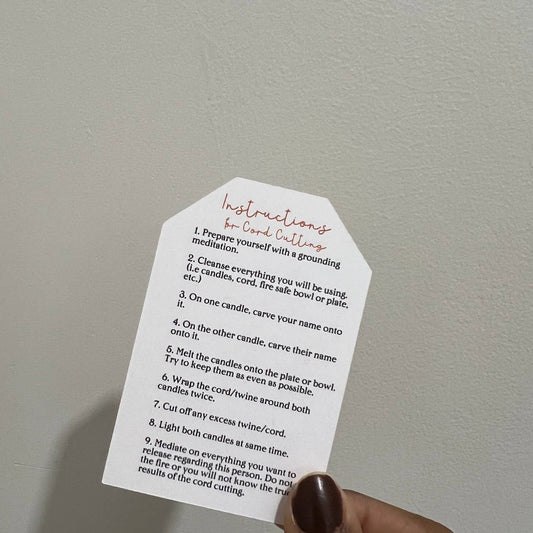 Instructions
for Cord Cutting
1. Prepare yourself with a grounding
meditation.
2. Cleanse everything you will be using.
(i.e candles, cord, fire safe bowl or plate,
etc.)
3. On one candle, carve your name onto
it.
4. On the other candle, carve their name
onto it.
5. Melt the candles onto the plate or bowl.
Try to keep them as even as possible.
6. Wrap the cord/twine around both
candles twice.
7. Cut off any excess twine/cord.
8. Light both candles at same time.
9. Mediate on everything you want to
release regarding this person. Do not
the fire or you will not know the
results of the cord cutting.